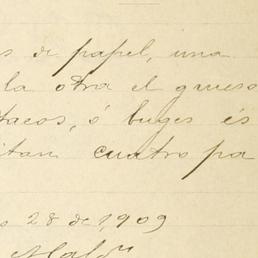 s de papel, una
la otra el grueso
tacos, ó buges és
itan cuatro pa
s 28 de 1,909